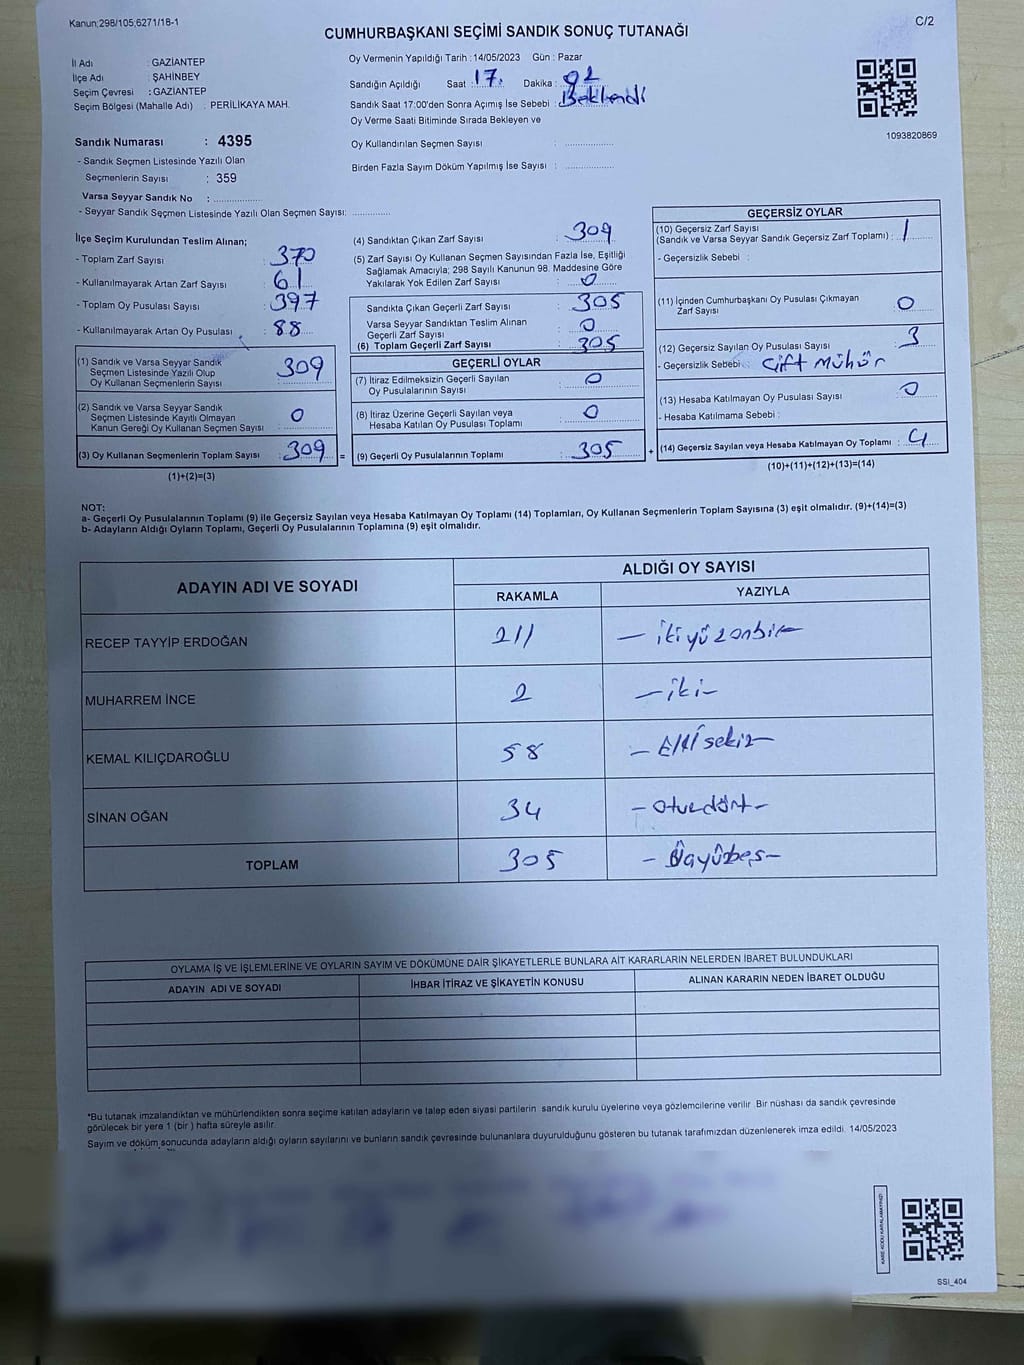 Kanun;298/105,6271/18-1
C/2
CUMHURBAŞKANI SEÇİMİ SANDIK SONUÇ TUTANAĞI
İl Adı : GAZİANTEP
İlçe Adı : ŞAHİNBEY
Seçim Çevresi : GAZİANTEP
Seçim Bölgesi (Mahalle Adı) : PERİLİKAYA MAH.
Oy Vermenin Yapıldığı Tarih : 14/05/2023 Gün : Pazar
Sandığın Açıldığı Saat : 17. Dakika :
Sandık Saat 17:00'den Sonra Açımış İse Sebebi : Beklendi
Oy Verme Saati Bitiminde Sırada Bekleyen ve
Oy Kullandırılan Seçmen Sayısı :
Birden Fazla Sayım Döküm Yapılmış İse Sayısı :
1093820869
Sandık Numarası : 4395
- Sandık Seçmen Listesinde Yazılı Olan
Seçmenlerin Sayısı : 359
Varsa Seyyar Sandık No :
- Seyyar Sandık Seçmen Listesinde Yazılı Olan Seçmen Sayısı:
İlçe Seçim Kurulundan Teslim Alınan;
- Toplam Zarf Sayısı : 370
- Kullanılmayarak Artan Zarf Sayısı : 61
- Toplam Oy Pusulası Sayısı : 397
- Kullanılmayarak Artan Oy Pusulası : 88
(1) Sandık ve Varsa Seyyar Sandık
Seçmen Listesinde Yazılı Olup
Oy Kullanan Seçmenlerin Sayısı : 309
(2) Sandık ve Varsa Seyyar Sandık
Seçmen Listesinde Kayıtlı Olmayan
Kanun Gereği Oy Kullanan Seçmen Sayısı : 0
(3) Oy Kullanan Seçmenlerin Toplam Sayısı : 309 =
(1)+(2)=(3)
(4) Sandıktan Çıkan Zarf Sayısı : 309
(5) Zarf Sayısı Oy Kullanan Seçmen Sayısından Fazla İse, Eşitliği
Sağlamak Amacıyla; 298 Sayılı Kanunun 98. Maddesine Göre
Yakılarak Yok Edilen Zarf Sayısı : 0
Sandıkta Çıkan Geçerli Zarf Sayısı : 305
Varsa Seyyar Sandıktan Teslim Alınan
Geçerli Zarf Sayısı : 0
(6) Toplam Geçerli Zarf Sayısı : 305
GEÇERLİ OYLAR
(7) İtiraz Edilmeksizin Geçerli Sayılan
Oy Pusulalarının Sayısı : 0
(8) İtiraz Üzerine Geçerli Sayılan veya
Hesaba Katılan Oy Pusulası Toplamı : 0
(9) Geçerli Oy Pusulalarının Toplamı : 305 +
GEÇERSİZ OYLAR
(10) Geçersiz Zarf Sayısı
(Sandık ve Varsa Seyyar Sandık Geçersiz Zarf Toplamı) : 1
- Geçersizlik Sebebi :
(11) İçinden Cumhurbaşkanı Oy Pusulası Çıkmayan
Zarf Sayısı : 0
(12) Geçersiz Sayılan Oy Pusulası Sayısı : 3
- Geçersizlik Sebebi : Çift Mühür
(13) Hesaba Katılmayan Oy Pusulası Sayısı : 0
- Hesaba Katılmama Sebebi :
(14) Geçersiz Sayılan veya Hesaba Katılmayan Oy Toplamı : 4
(10)+(11)+(12)+(13)=(14)
NOT:
a- Geçerli Oy Pusulalarının Toplamı (9) ile Geçersiz Sayılan veya Hesaba Katılmayan Oy Toplamı (14) Toplamları, Oy Kullanan Seçmenlerin Toplam Sayısına (3) eşit olmalıdır. (9)+(14)=(3)
b- Adayların Aldığı Oyların Toplamı, Geçerli Oy Pusulalarının Toplamına (9) eşit olmalıdır.
ADAYIN ADI VE SOYADI
ALDIĞI OY SAYISI
RAKAMLA YAZIYLA
RECEP TAYYİP ERDOĞAN 211 - ikiyüzonbir
MUHARREM İNCE 2 - iki -
KEMAL KILIÇDAROĞLU 58 - Ellisekiz
SİNAN OĞAN 34 - otuzdört -
TOPLAM 305 - Üçyüzbeş -
OYLAMA İŞ VE İŞLEMLERİNE VE OYLARIN SAYIM VE DÖKÜMÜNE DAİR ŞİKAYETLERLE BUNLARA AİT KARARLARIN NELERDEN İBARET BULUNDUKLARI
ADAYIN ADI VE SOYADI İHBAR İTİRAZ VE ŞİKAYETİN KONUSU ALINAN KARARIN NEDEN İBARET OLDUĞU
*Bu tutanak imzalandıktan ve mühürlendikten sonra seçime katılan adayların ve talep eden siyasi partilerin sandık kurulu üyelerine veya gözlemcilerine verilir. Bir nüshası da sandık çevresinde
görülecek bir yere 1 (bir) hafta süreyle asılır.
Sayım ve döküm sonucunda adayların aldığı oyların sayılarını ve bunların sandık çevresinde bulunanlara duyurulduğunu gösteren bu tutanak tarafımızdan düzenlenerek imza edildi. 14/05/2023
KARE KODU KARALAMAYINIZ!
SSI_404